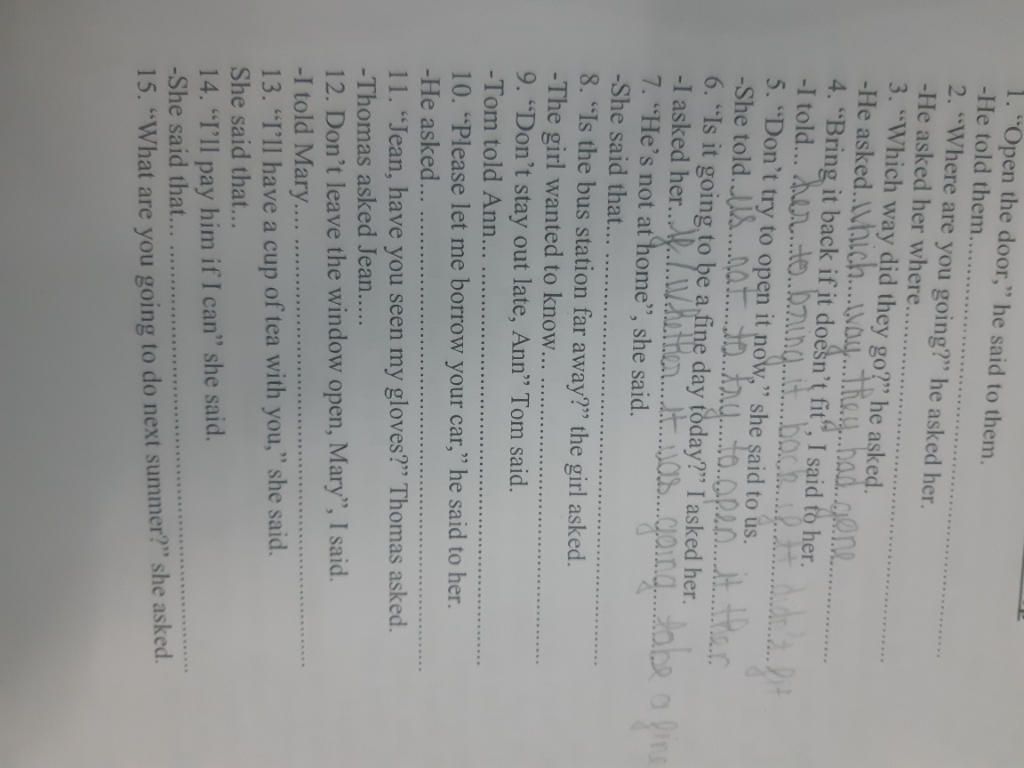 1. “Open the door,” he said to them.
-He told them..............................
2. “Where are you going?” he asked her.
-He asked her where..............................
3. “Which way did they go?” he asked.
-He asked..which way they had gone
4. “Bring it back if it doesn't fit”, I said to her.
-I told... her to bring it back if it didn't fit
5. “Don't try to open it now,” she said to us.
-She told..us not to try to open it then
6. “Is it going to be a fine day today?” I asked her.
-I asked her...if/whether it was going to be a fine
7. “He's not at home”, she said.
-She said that... ..............................
8. “Is the bus station far away?” the girl asked.
-The girl wanted to know... ..............................
9. “Don't stay out late, Ann” Tom said.
-Tom told Ann... ..............................
10. “Please let me borrow your car,” he said to her.
-He asked... ..............................
11. “Jean, have you seen my gloves?” Thomas asked.
-Thomas asked Jean....
12. Don't leave the window open, Mary”, I said.
-I told Mary.... ..............................
13. “I'll have a cup of tea with you,” she said.
She said that...
14. “I'll pay him if I can” she said.
-She said that... ..............................
15. “What are you going to do next summer?” she asked.